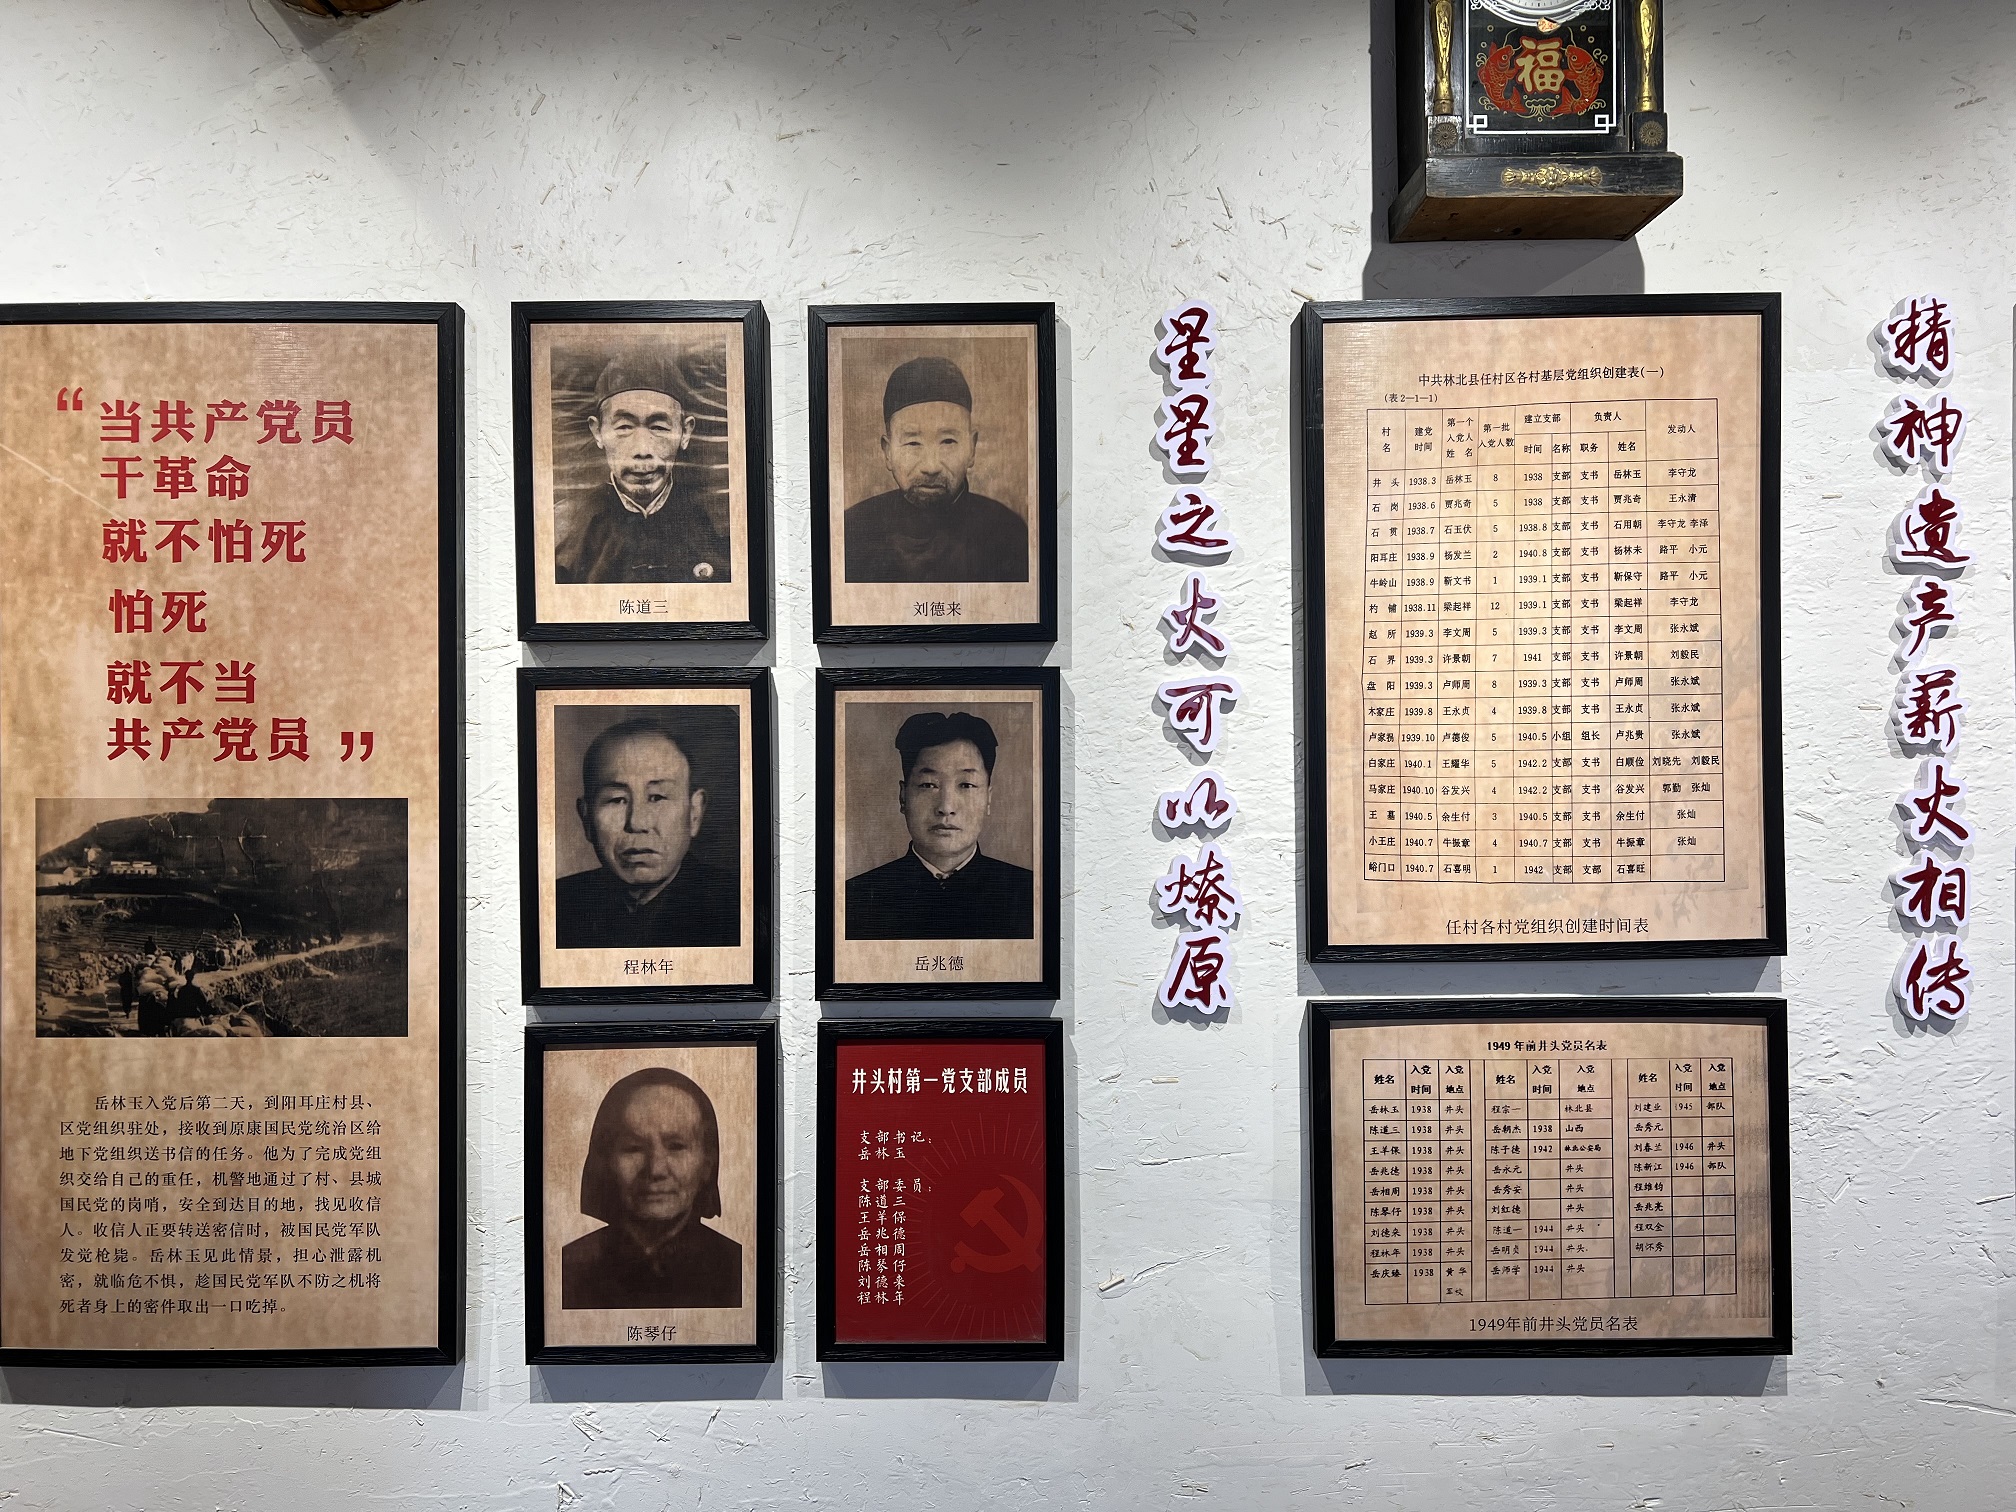 福
“当共产党员
干革命
就不怕死
怕死
就不当
共产党员”
岳林玉入党后第二天，到阳耳庄村县、
区党组织驻处，接收到原康国民党统治区给
地下党组织送书信的任务。他为了完成党组
织交给自己的重任，机警地通过了村、县城
国民党的岗哨，安全到达目的地，找见收信
人。收信人正要转送密信时，被国民党军队
发觉枪毙。岳林玉见此情景，担心泄露机
密，就临危不惧，趁国民党军队不防之机将
死者身上的密件取出一口吃掉。
陈道三
刘德来
程林年
岳兆德
陈琴仔
井头村第一党支部成员
支部书记：
岳林玉
支部委员：
陈道三
王羊保
岳兆德
岳相周
陈琴仔
刘德来
程林年
星星之火可以燎原
中共林北县任村区各村基层党组织创建表(一)
(表2—1—1)
村名 建党时间 第一个入党人姓名 第一批入党人数 建立支部 负责人 发动人
时间 名称 职务 姓名
井头 1938.3 岳林玉 8 1938 支部 支书 岳林玉 李守龙
石岗 1938.6 贾兆奇 5 1938 支部 支书 贾兆奇 王永清
石贯 1938.7 石玉伏 5 1938.8 支部 支书 石用朝 李守龙 李泽
阳耳庄 1938.9 杨发兰 2 1940.8 支部 支书 杨林未 路平 小元
牛岭山 1938.9 靳文书 1 1939.1 支部 支书 靳保守 路平 小元
杓铺 1938.11 梁起祥 12 1939.1 支部 支书 梁起祥 李守龙
赵所 1939.3 李文周 5 1939.3 支部 支书 李文周 张永斌
石界 1939.3 许景朝 7 1941 支部 支书 许景朝 刘毅民
盘阳 1939.3 卢师周 8 1939.3 支部 支书 卢师周 张永斌
木家庄 1939.8 王永贞 4 1939.8 支部 支书 王永贞 张永斌
卢家拐 1939.10 卢德俊 5 1940.5 小组 组长 卢兆贵 张永斌
白家庄 1940.1 王耀华 5 1942.2 支部 支书 白顺俭 刘晓先 刘毅民
马家庄 1940.10 谷发兴 4 1942.2 支部 支书 谷发兴 郭勤 张灿
王墓 1940.5 余生付 3 1940.5 支部 支书 余生付 张灿
小王庄 1940.7 牛振章 4 1940.7 支部 支书 牛振章 张灿
峪门口 1940.7 石喜明 1 1942 支部 支部 石喜旺
任村各村党组织创建时间表
1949年前井头党员名表
姓名 入党时间 入党地点 姓名 入党时间 入党地点 姓名 入党时间 入党地点
岳林玉 1938 井头 程宗一 林北县 刘建业 1945 部队
陈道三 1938 井头 岳朝杰 1938 山西 岳秀元
王羊保 1938 井头 陈子德 1942 林北公安局 刘春兰 1946 井头
岳兆德 1938 井头 岳永元 井头 陈新江 1946 部队
岳相周 1938 井头 岳秀安 井头 程维钧
陈琴仔 1938 井头 刘红德 井头 岳兆亮
刘德来 1938 井头 陈道一 1944 井头 程双全
程林年 1938 井头 岳明贞 1944 井头 胡怀秀
岳庆臻 1938 黄华 岳师学 1944 井头
1949年前井头党员名表
精神遗产薪火相传